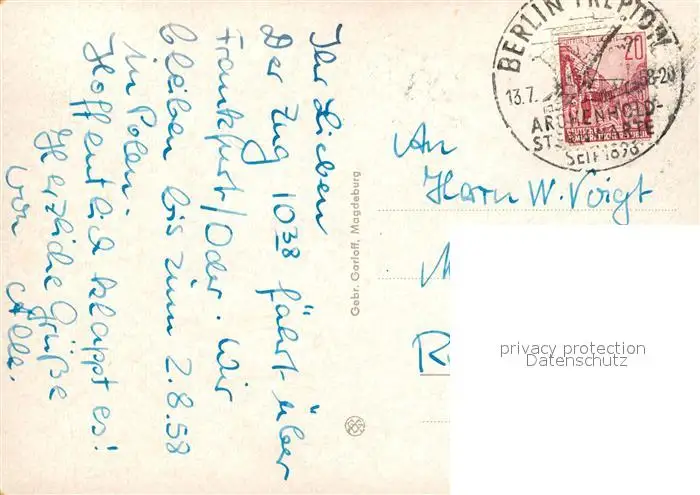 Ihr Lieben
Der Zug 10³⁸ fährt über
Frankfurt/Oder. Wir
bleiben bis zum 2.8.58
in Polen.
Hoffentlich klappt es!
Herzliche Grüße
von Alle.
Gebr. Garloff, Magdeburg
BERLIN TREPTOW
20
13.7. 58-20
ARCHENHOLD-
STERNWARTE
SEIT 1896
An
Herrn W. Voigt
M
R
privacy protection
Datenschutz